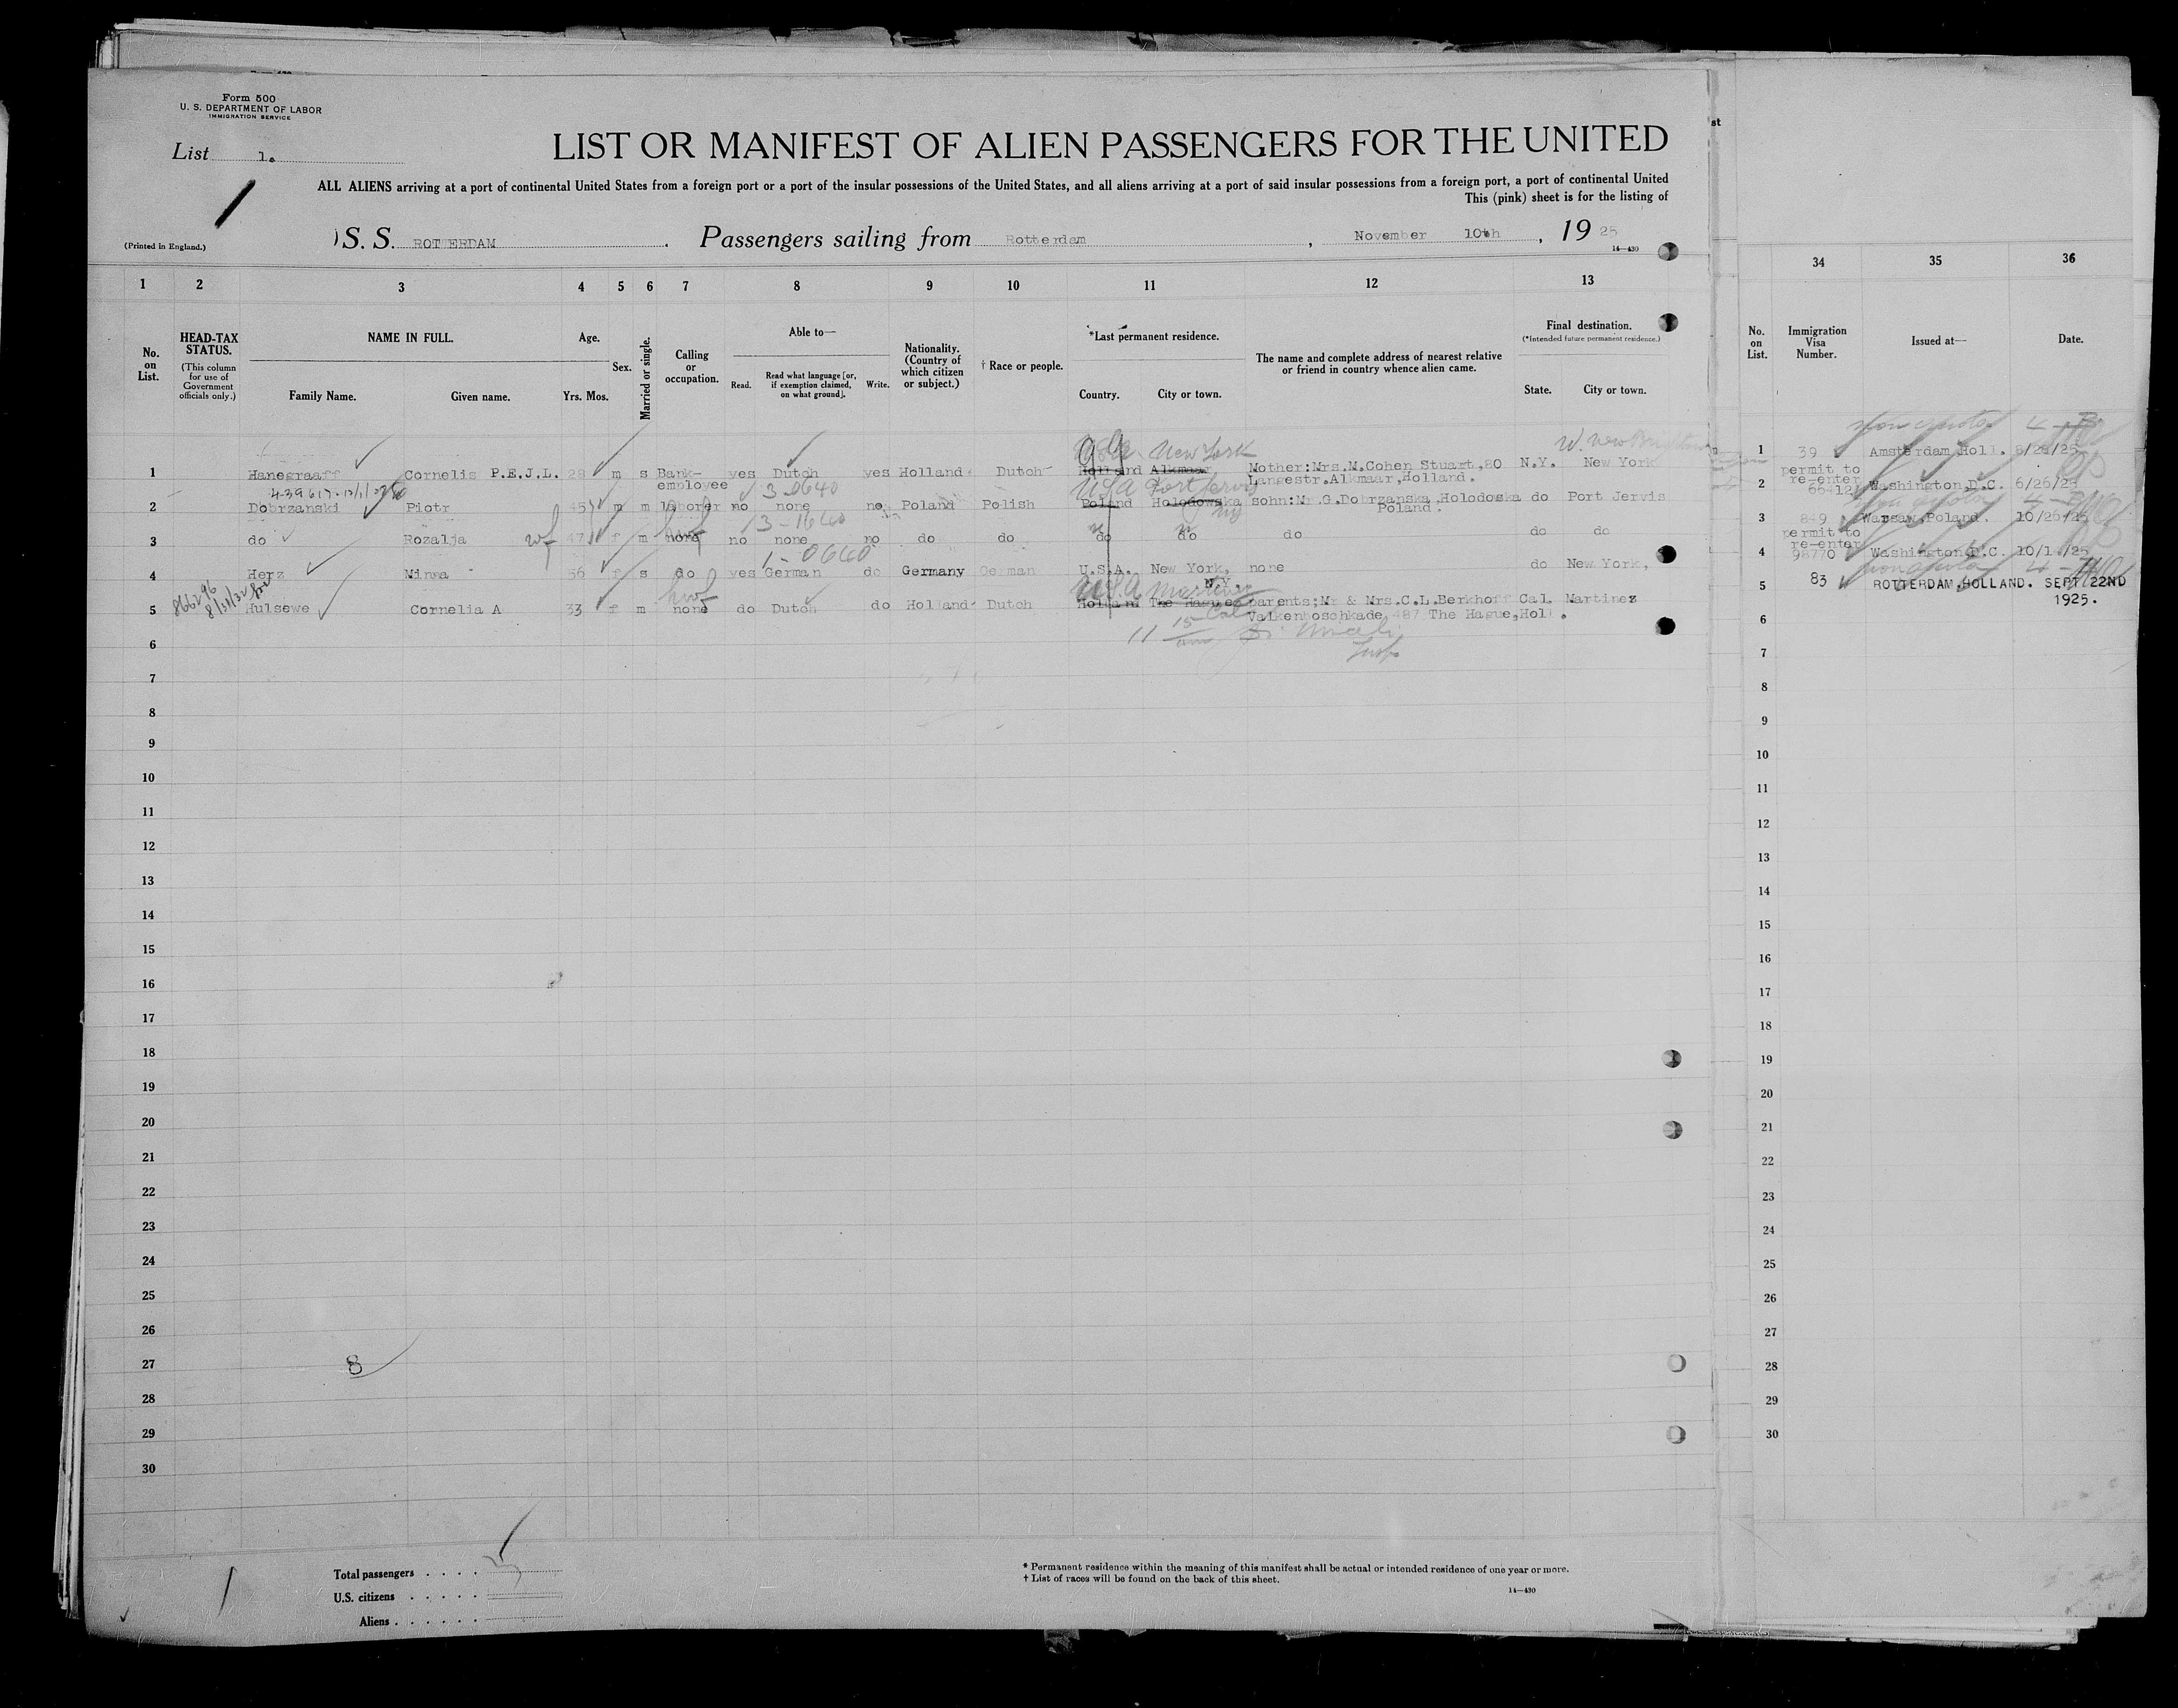 Form 500
U. S. DEPARTMENT OF LABOR
IMMIGRATION SERVICE
List 1.
LIST OR MANIFEST OF ALIEN PASSENGERS FOR THE UNITED
st
ALL ALIENS arriving at a port of continental United States from a foreign port or a port of the insular possessions of the United States, and all aliens arriving at a port of said insular possessions from a foreign port, a port of continental United
This (pink) sheet is for the listing of
(Printed in England.)
S. S. ROTTERDAM . Passengers sailing from Rotterdam , November 10th , 19 25
14—430
1 2 3 4 5 6 7 8 9 10 11 12 13 34 35 36
No. on List.
HEAD-TAX STATUS.
(This column for use of Government officials only.)
NAME IN FULL.
Family Name. Given name.
Age.
Yrs. Mos.
Sex.
Married or single.
Calling or occupation.
Able to—
Read. Read what language [or, if exemption claimed, on what ground]. Write.
Nationality. (Country of which citizen or subject.)
† Race or people.
*Last permanent residence.
Country. City or town.
The name and complete address of nearest relative or friend in country whence alien came.
Final destination.
(*Intended future permanent residence.)
State. City or town.
No. on List.
Immigration Visa Number.
Issued at—
Date.
New York
1 Hanegraaff Cornelis P.E.J.L. 28 m s Bank- yes Dutch yes Holland Dutch Holland Alkmaar Mother:Mrs.M.Cohen Stuart,80 N.Y. New York 1 39 Amsterdam,Holl.
employee Langestr.Alkmaar,Holland.
USA Port Jervis
2 Dobrzanski Piotr 45 m m laborer no none no Poland Polish Poland Holodowska sohn:Mr.G.Dobrzanska,Holodoska do Port Jervis 2 permit to re-enter 66412 Washington,D.C. 6/26/25
Poland.
NY
wf
3 do Rozalja 47 f m none no none no do do do do do do do 3 849 Warsaw,Poland. 10/26/25
1-0640
4 Herz Minna 56 f s do yes German do Germany German U.S.A. New York, none do New York, 4 permit to re-enter 98770 Washington D.C.
N.Y.
866296
USA Martinez Cal
5 Hulsewe Cornelia A 33 f m none do Dutch do Holland Dutch Holland The Hague parents;Mr & Mrs.C.L.Berkhoff Cal. Martinez 5 83 ROTTERDAM,HOLLAND. SEPT 22ND 1925.
Valkenboschkade 487 The Hague,Holl.
6 6
7 7
8 8
9 9
10 10
11 11
12 12
13 13
14 14
15 15
16 16
17 17
18 18
19 19
20 20
21 21
22 22
23 23
24 24
25 25
26 26
27 27
8
28 28
29 29
30 30
Total passengers . . . .
U.S. citizens . . . . .
Aliens . . . . . .
* Permanent residence within the meaning of this manifest shall be actual or intended residence of one year or more.
† List of races will be found on the back of this sheet.
14—430